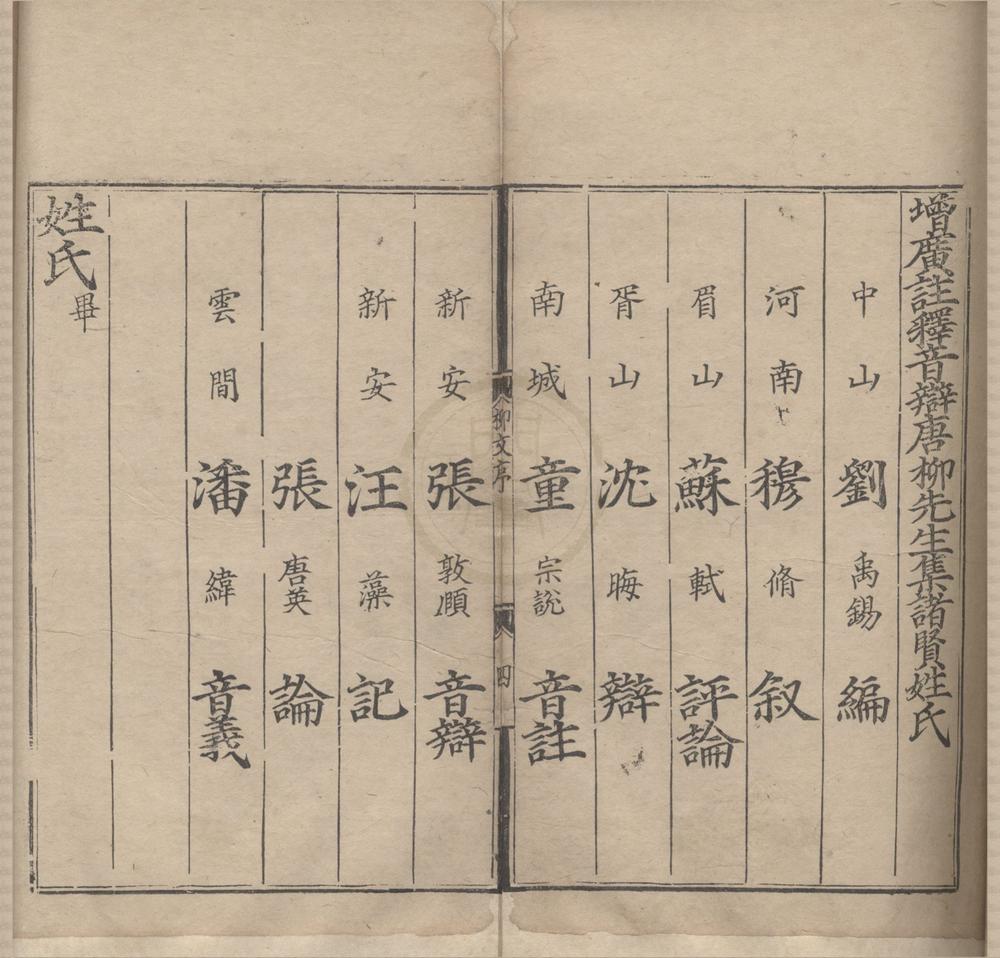 增廣註釋音辯唐柳先生集諸賢姓氏
中山劉禹錫編
河南穆脩叙
眉山蘇軾評論
胥山沈晦辯
南城童宗說音註
柳文序
四
新安張敦頤音辯
新安汪藻記
張唐英論
雲間潘緯音義
姓氏畢